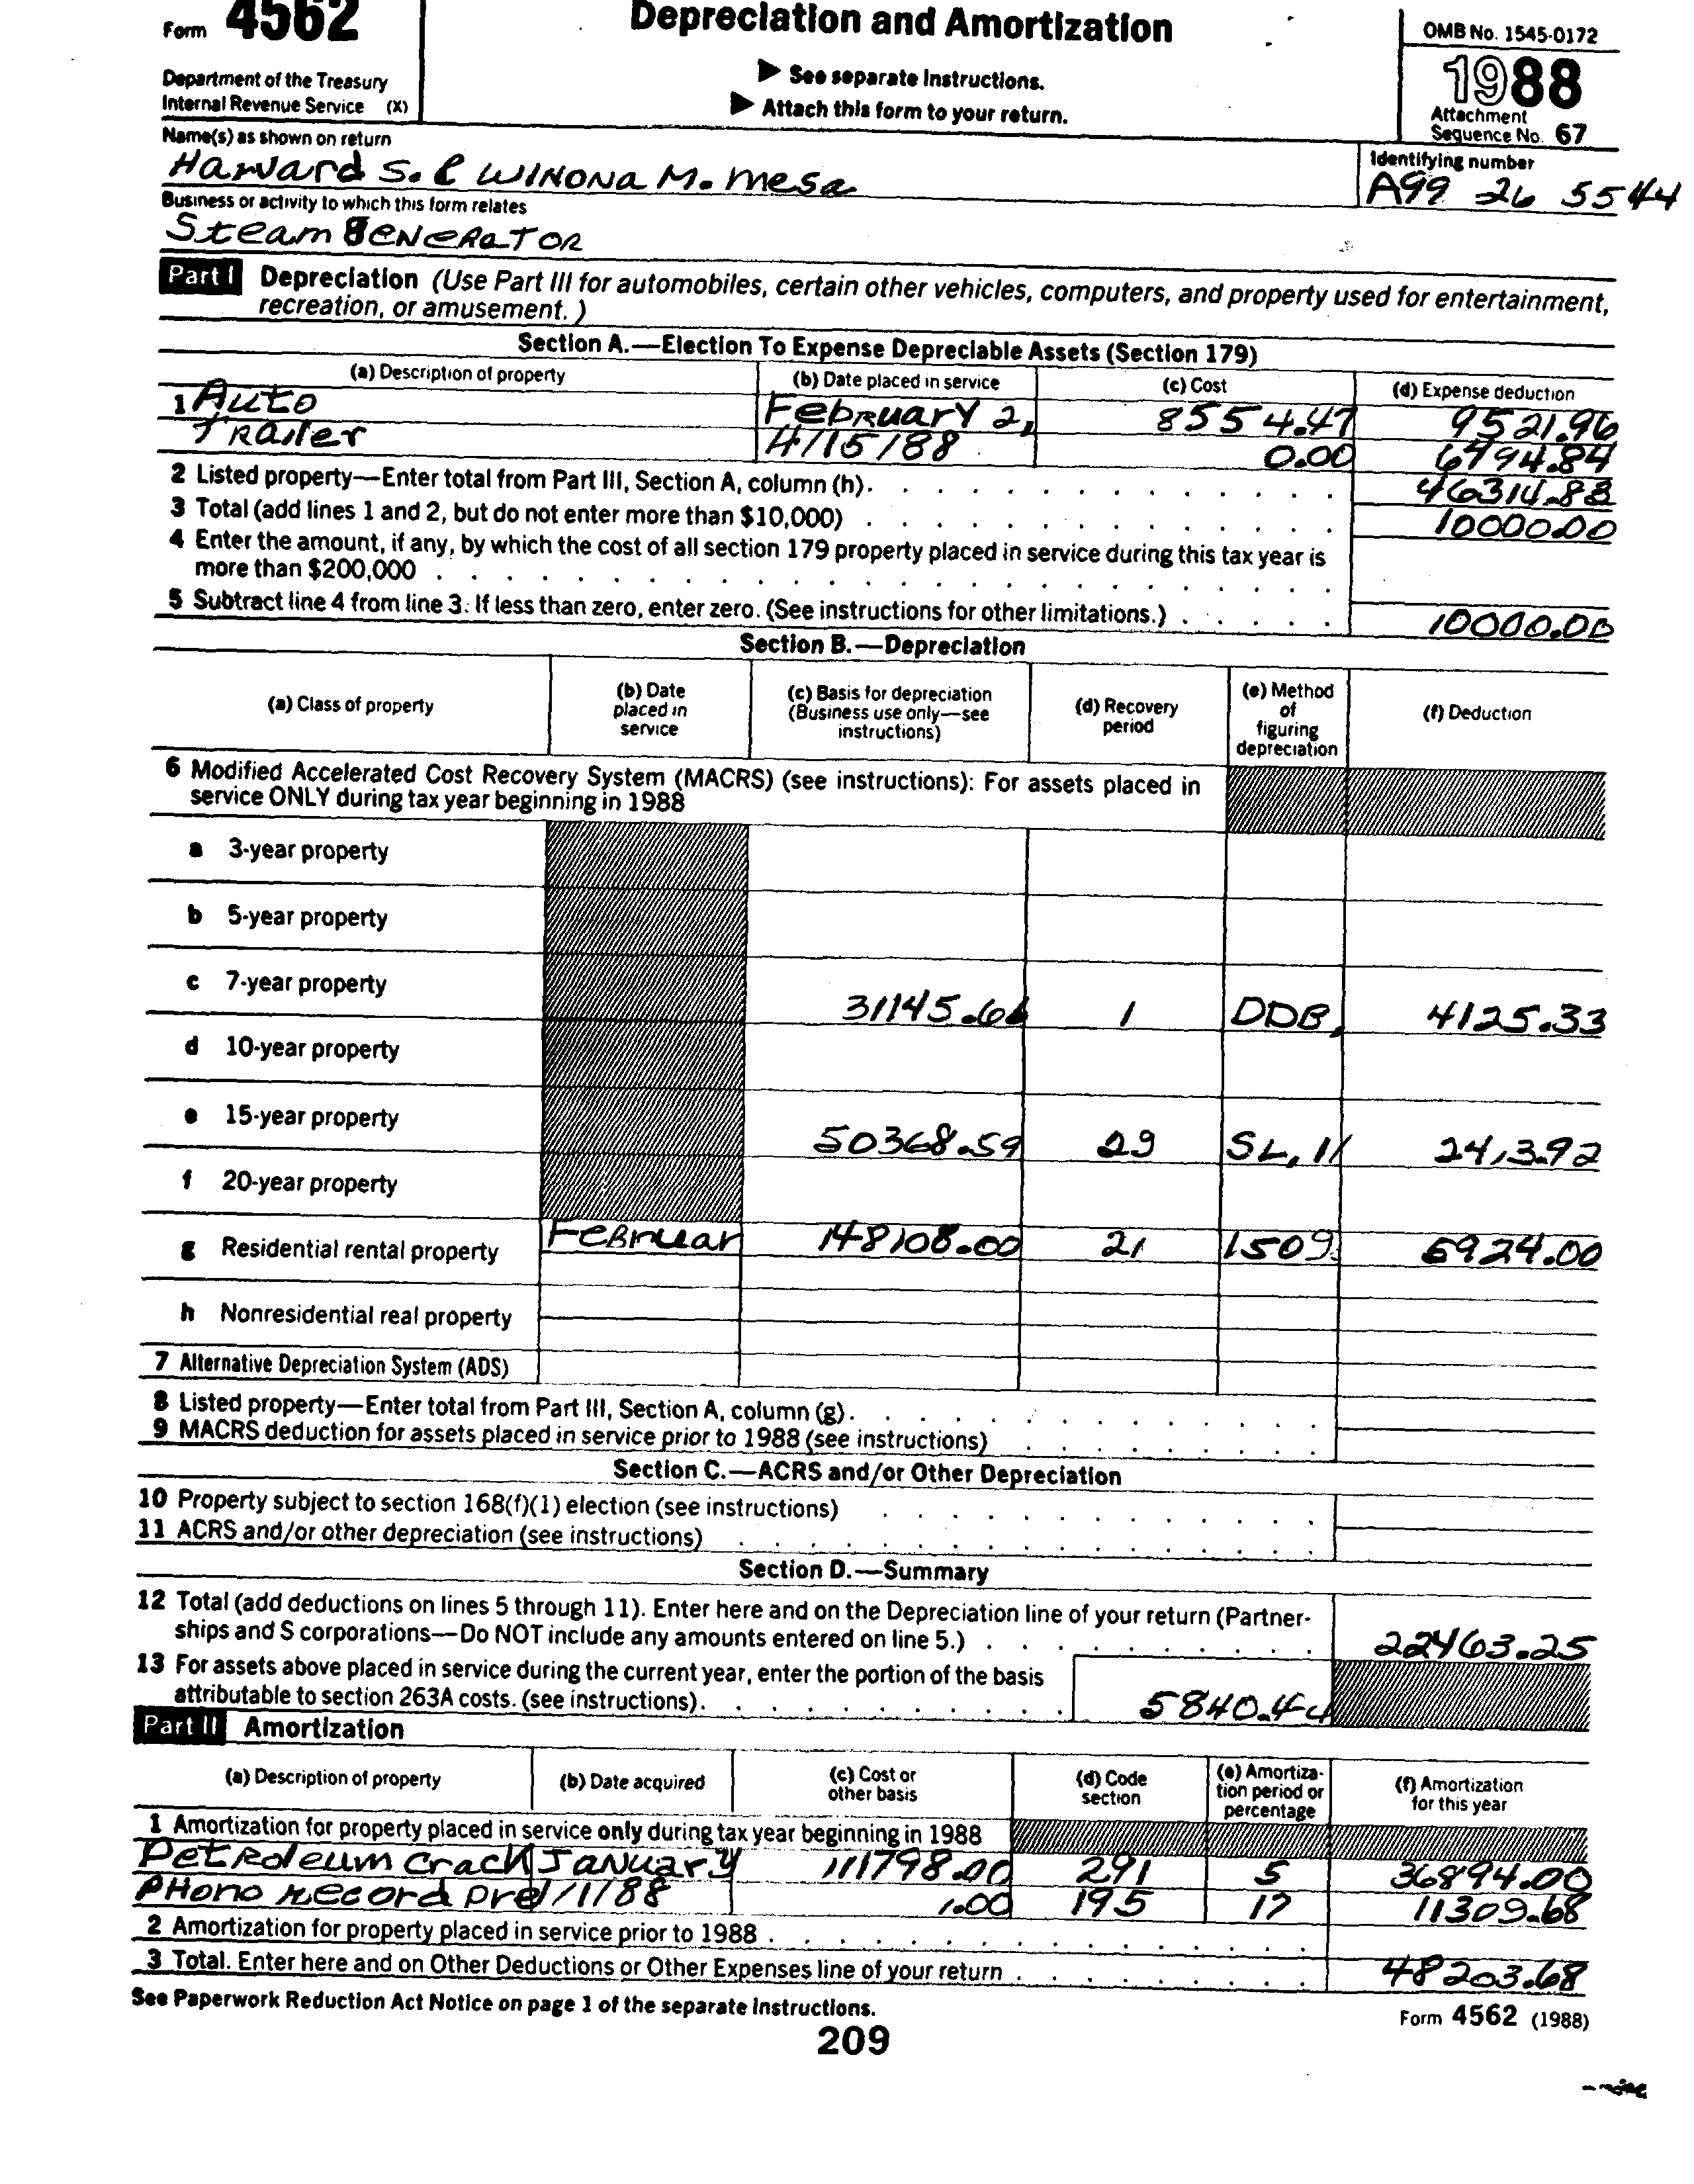 Form 4562
Depreciation and Amortization
OMB No. 1545-0172
Department of the Treasury
Internal Revenue Service (X)
▶ See separate Instructions.
▶ Attach this form to your return.
1988
Attachment
Sequence No. 67
Name(s) as shown on return
Harvard S. & WINONA M. Mesa
Identifying number
A99 26 5544
Business or activity to which this form relates
Steam GENERATOR
Part I Depreciation (Use Part III for automobiles, certain other vehicles, computers, and property used for entertainment,
recreation, or amusement.)
Section A.—Election To Expense Depreciable Assets (Section 179)
(a) Description of property (b) Date placed in service (c) Cost (d) Expense deduction
1 Auto FebRuarY 2, 8554.47 9521.96
TRailer 4/15/88 0.00 6794.84
2 Listed property—Enter total from Part III, Section A, column (h). 46314.88
3 Total (add lines 1 and 2, but do not enter more than $10,000) 10000.00
4 Enter the amount, if any, by which the cost of all section 179 property placed in service during this tax year is
more than $200,000
5 Subtract line 4 from line 3. If less than zero, enter zero. (See instructions for other limitations.) 10000.00
Section B.—Depreciation
(a) Class of property
(b) Date placed in service
(c) Basis for depreciation (Business use only—see instructions)
(d) Recovery period
(e) Method of figuring depreciation
(f) Deduction
6 Modified Accelerated Cost Recovery System (MACRS) (see instructions): For assets placed in
service ONLY during tax year beginning in 1988
a 3-year property
b 5-year property
c 7-year property 31145.66 1 DDB, 4125.33
d 10-year property
e 15-year property 50368.59 29 SL, 11 2413.92
f 20-year property
g Residential rental property FeBruar 148108.00 21 1509 5924.00
h Nonresidential real property
7 Alternative Depreciation System (ADS)
8 Listed property—Enter total from Part III, Section A, column (g).
9 MACRS deduction for assets placed in service prior to 1988 (see instructions)
Section C.—ACRS and/or Other Depreciation
10 Property subject to section 168(f)(1) election (see instructions)
11 ACRS and/or other depreciation (see instructions)
Section D.—Summary
12 Total (add deductions on lines 5 through 11). Enter here and on the Depreciation line of your return (Partner-
ships and S corporations—Do NOT include any amounts entered on line 5.) 22463.25
13 For assets above placed in service during the current year, enter the portion of the basis
attributable to section 263A costs. (see instructions). 5840.44
Part II Amortization
(a) Description of property
(b) Date acquired
(c) Cost or other basis
(d) Code section
(e) Amortization period or percentage
(f) Amortization for this year
1 Amortization for property placed in service only during tax year beginning in 1988
PetRoleum Crack JaNuary 111798.00 291 5 36894.00
PHono Record pre 1/1/88 1.00 195 17 11309.68
2 Amortization for property placed in service prior to 1988
3 Total. Enter here and on Other Deductions or Other Expenses line of your return 48203.68
See Paperwork Reduction Act Notice on page 1 of the separate Instructions.
Form 4562 (1988)
209